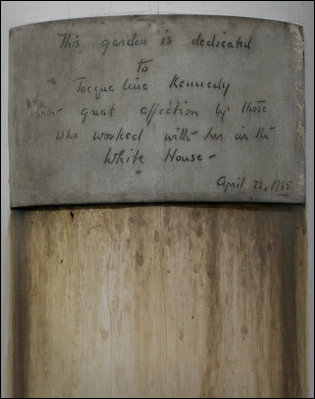 This garden is dedicated
to
Jacqueline Kennedy
with great affection by those
who worked with her in the
White House -
April 22, 1965